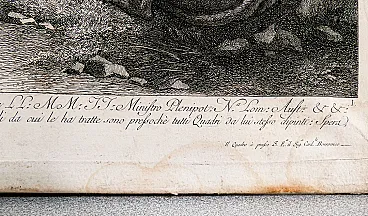 LL: MM: II: Ministro Plenipot: N. Lom: Aust: &c &c:
i da cui le ha tratte sono pressochè tutti Quadri da lui stesso dipinti: Spera
Il Quadro è presso S. E. il Sig.